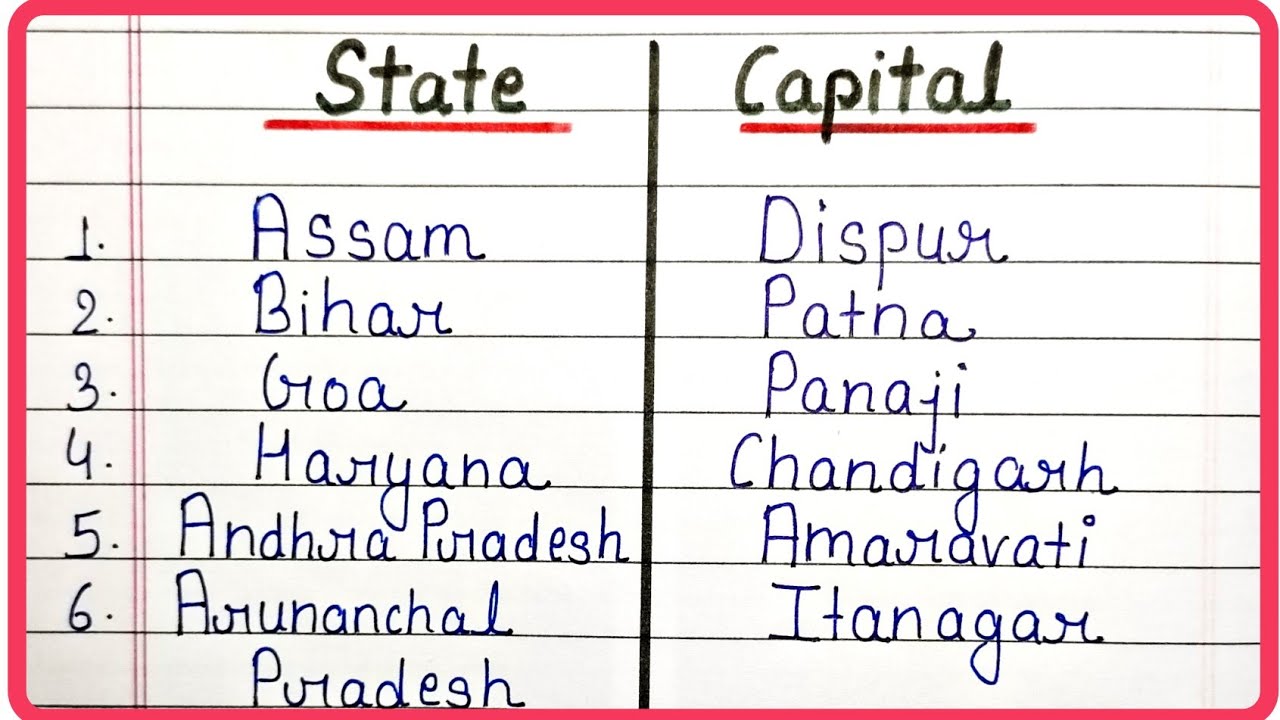 State Capital
1. Assam Dispur
2. Bihar Patna
3. Goa Panaji
4. Haryana Chandigarh
5. Andhra Pradesh Amaravati
6. Arunanchal Itanagar
Pradesh